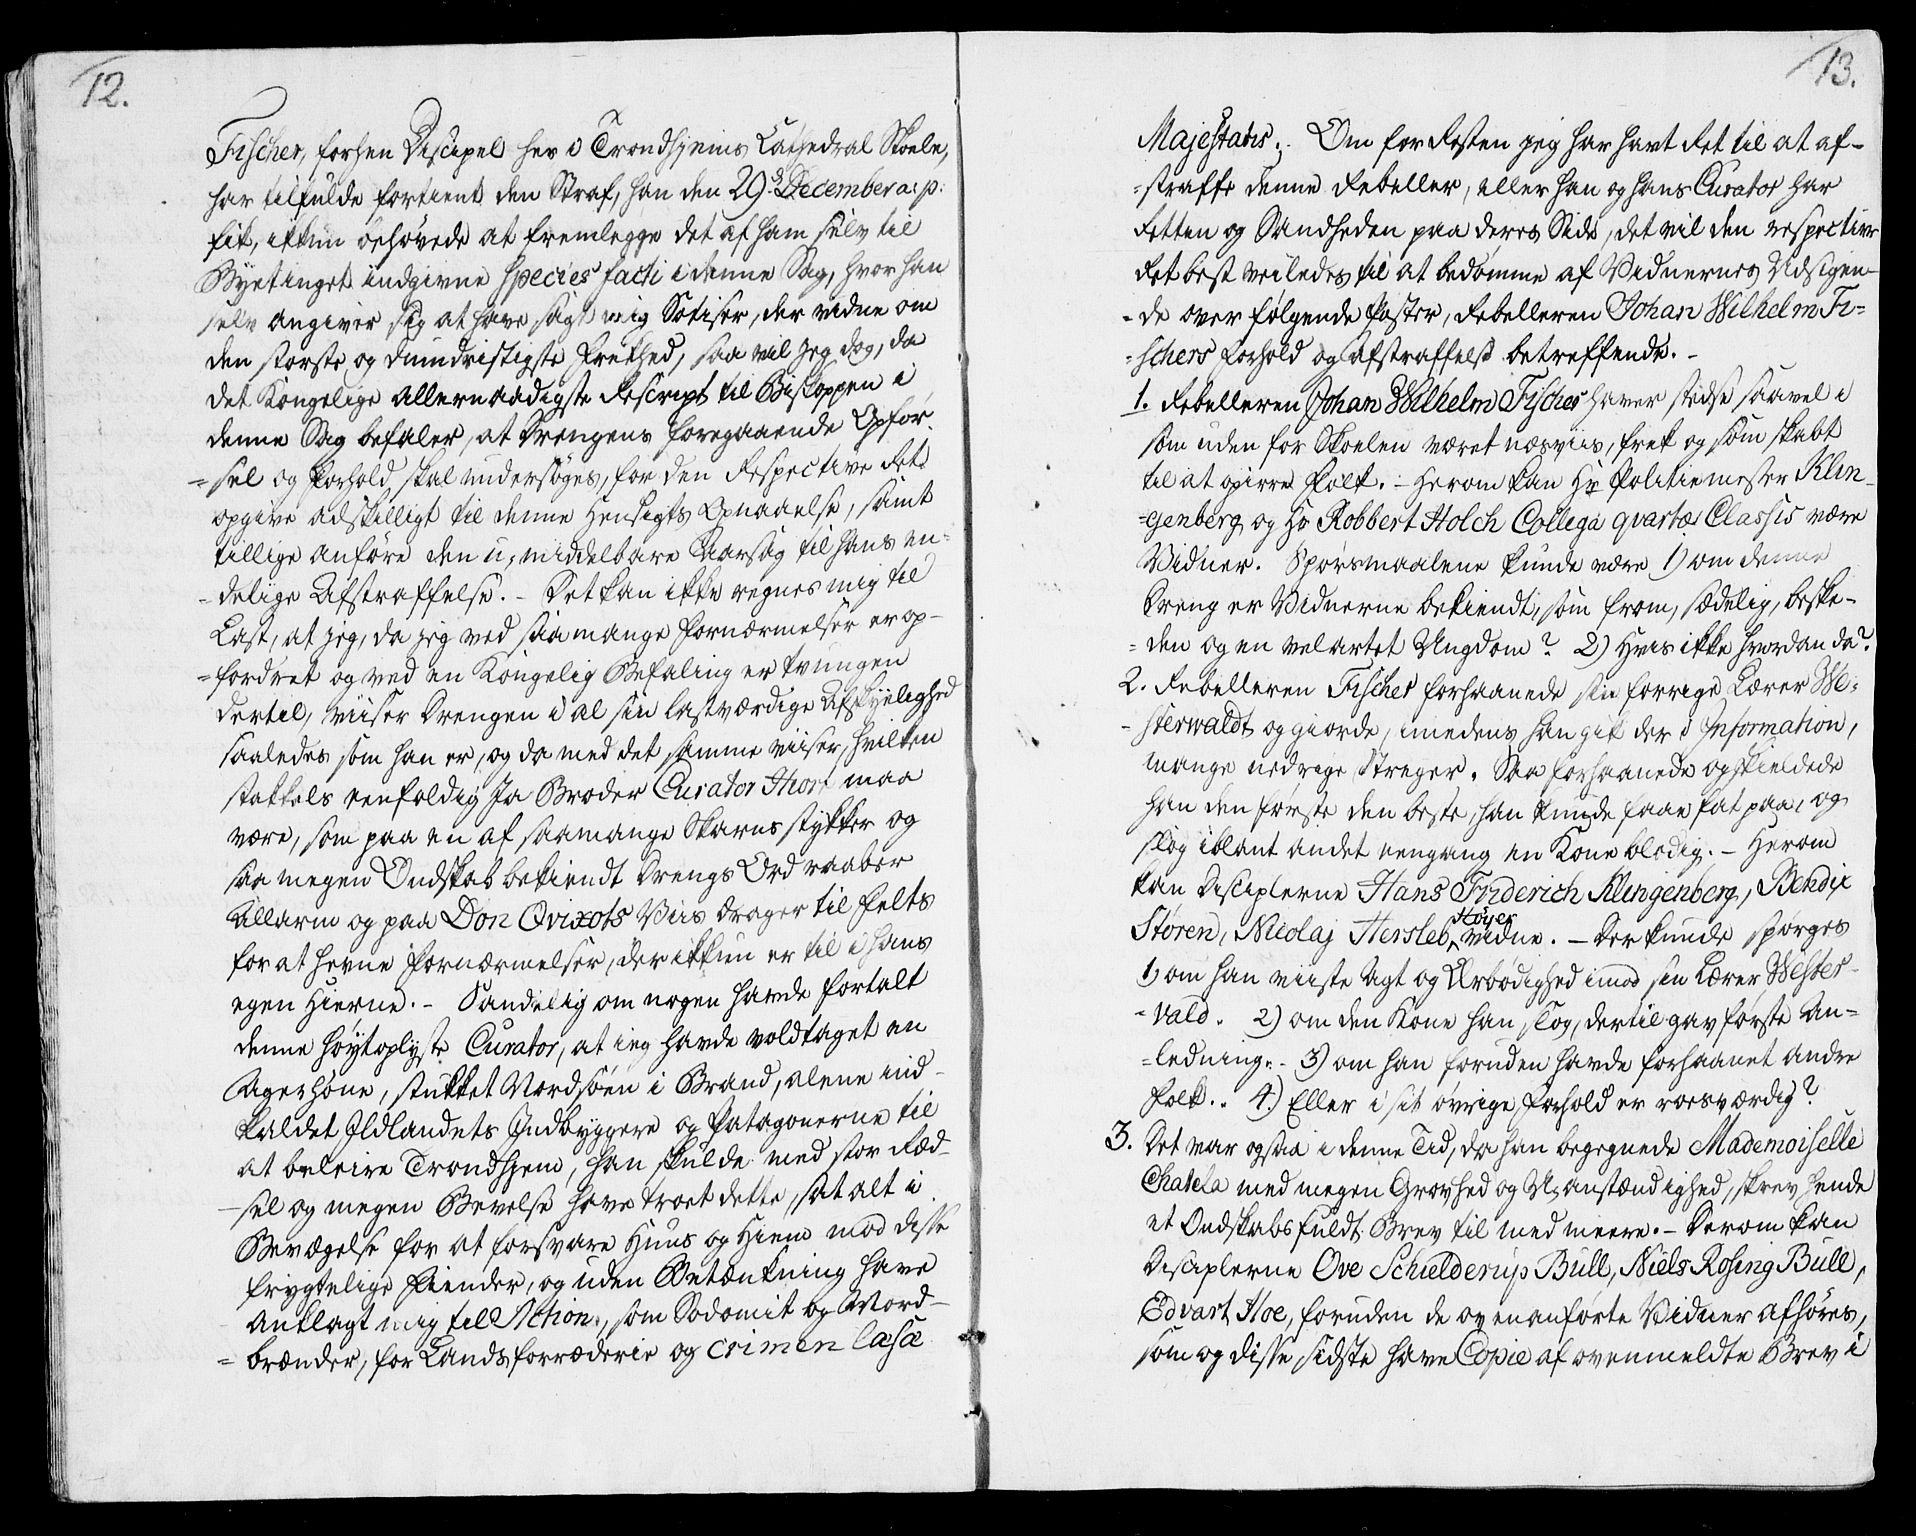 12.
Fischer, forhen Discipel her i Trondhjems Cathedral Skole,
har tilfulde fortient den Straf, han den 29de December a: p:
fik, ikkun behøvede at fremlegge det af ham selv til
Byetinget indgivne species facti i denne Sag, hvor han
selv angiver sig at have sagt mig Sotiser, der vidne om
den største og dumdristigste Frekhed, saa vil jeg dog, da
det Kongelige allernaadigste Rescript til Biskoppen i
denne Sag befaler, at Drengens foregaaende Opfør-
=sel og Forhold skal undersøges, for den Respective Ret
opgive adskilligt til denne Hensigts Opnaaelse, samt
tillige anføre den u,middelbare Aarsag til hans en-
=delige Afstraffelse. - Det kan ikke regnes mig til
Last, at jeg, da jeg ved saa mange Fornærmelser er op-
=fordret og ved en Kongelig Befaling er tvungen
dertil, viiser Drengen i al sin lastværdige Afskyelighed
saaledes som han er, og da med det samme viiser, hvilken
stakkels eenfoldig Ja Broder Curator Hiort maa
være, som paa en af saa mange Skarnsstykker og
saa megen Ondskab bekiendt Drengs Ord raaber
Allarm og paa Don Qvixots Viis drager til Felts
for at hevne Fornærmelser, der ikkun er til i hans
egen Hierne. - Sandelig om nogen havde fortalt
denne høytoplyste Curator, at ieg havde voldtaget en
Agerhøne, stukket Nordsøen i Brand, alene ind-
kaldet Ildlandets Indbyggere og Patagonerne til
at beleire Trondhjem, han skulde med stor Ræd-
-sel og megen Bevelse have troet dette, sat alt i
Bevægelse for at forsvare Huus og Hiem mod disse
frygtelige Fiender, og uden Betænkning have
Anklagt mig till Action, som Sodomit og Mord-
=brænder, for Landsforræderie og crimen læsæ
13.
Majestatis. Om for Resten jeg har havt Ret til at af-
=straffe denne Rebeller, eller han og hans Curator har
Retten og Sandheden paa deres Side, det vil den respective
Ret best veiledes til at bedømme af Vidnernes Udsigen-
-de over følgende Poster, Rebelleren Johan Wilhelm Fi=
=schers Forhold og Afstraffelse betreffende. -
1. Rebelleren Johan Wilhelm Fischer haver stedse saavel i
som uden for Skolen været næsviis, frek og som skabt
til at opirre Folk. - Herom kan Hr Politiemester Klin-
=genberg og Hr Robbert Holch Collega qvartæ Classis være
Vidner. Spørsmaalene kunde være 1) om denne
Dreng er Vidnerne bekiendt, som from, sædelig, beske-
=den og en velartet Ungdom? 2) Hvis ikke hvordan da?
2. Rebelleren Fischer forhaanede sin forrige Lærer We=
-sterwaldt og giorde, imedens han gik der i Information,
mange nedrige Streger. Saa forhaanede og skieldede
han den første den beste, han kunde faae fat paa, og
slog iblant andet eengang en Kone blodig. - Herom
kan Disciplerne Hans Friderich Klingenberg, Bendix
Støren, Nicolaj Hersleb Høyer vidne. - Der kunde spørges
1) om han viiste Agt og Ærbødighed imod sin Lærer Wester-
-vald. 2) om den Kone han slog, dertil gav første An=
=ledning. - 3) om han foruden havde forhaanet andre
Folk. 4.) Eller i sit øvrige Forhold er roesværdig?
3. Det var ogsaa i denne Tid, da han begegnede Mademoiselle
Chatela med megen Grovhed og U,anstændighed, skrev hende
et Ondskabsfuldt Brev til med meere. - Derom kan
Disciplerne Ove Schielderup Bull, Niels Rosing Bull,
Edvart Hoe, foruden de ovenanførte Vidner afhøres,
som og disse sidste have Copie af ovenmeldte Brev i